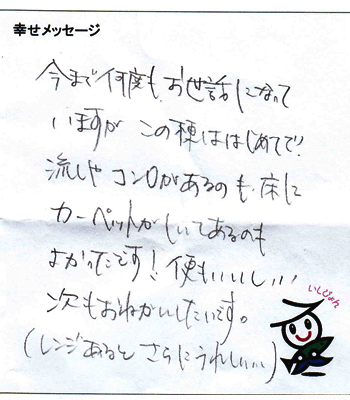 幸せメッセージ
今まで何度もお世話になって
いますが この種ははじめてで!
流しや コンロがあるのも 床に
カーペットがしいてあるのも
よかったです! 便もいいし、、、
次もおねがいしたいです。
(レンジあると さらにうれしい、、、)
いしじょん